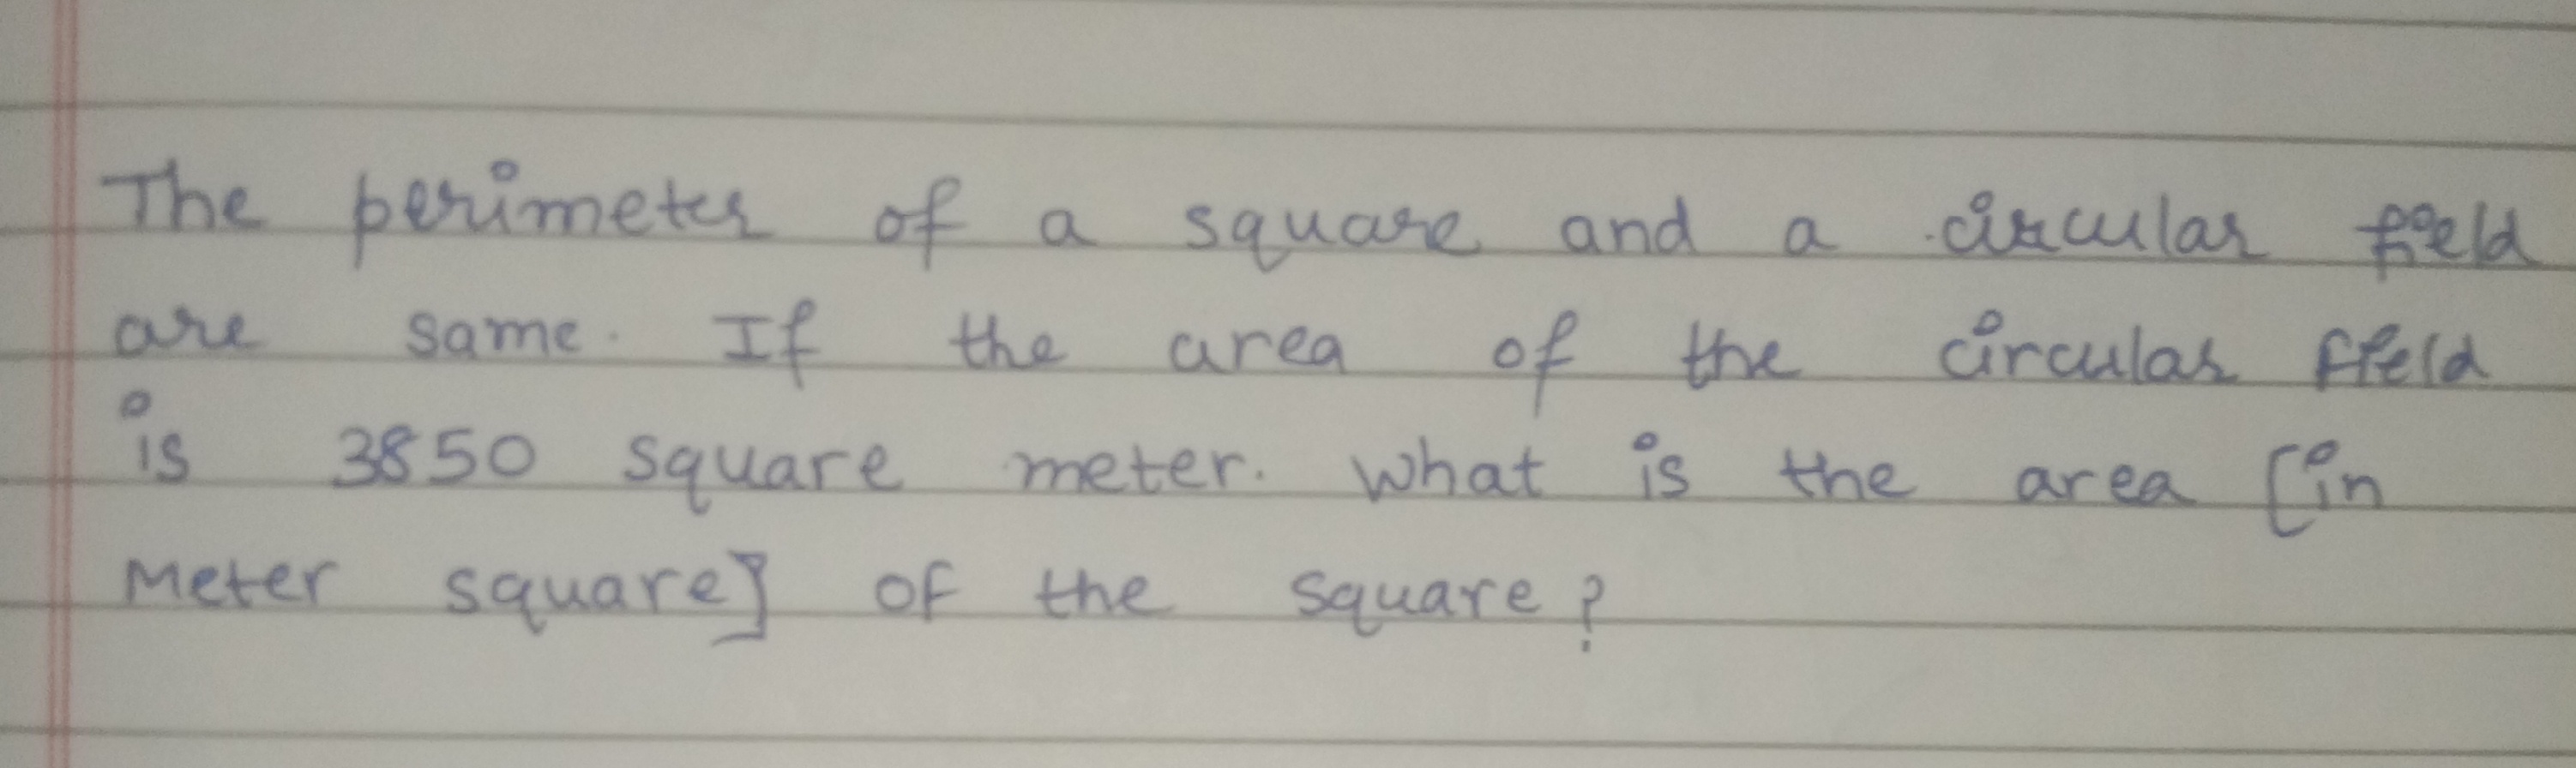 The perimeter of a square and a circular field
are same. If the area of the circular field
is 3850 square meter. What is the area [in
Meter square] of the square?